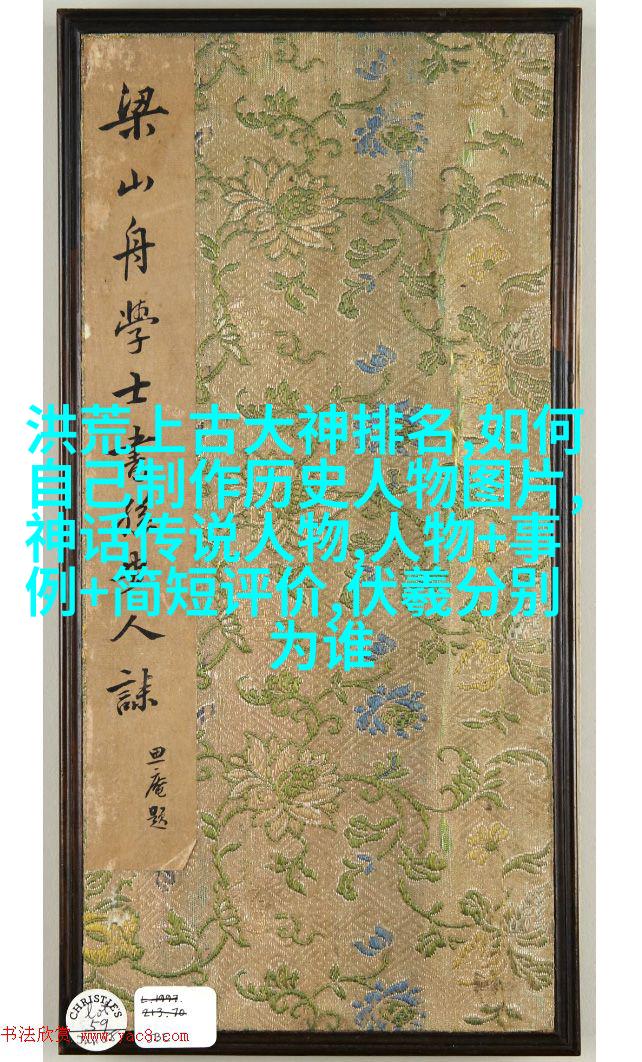 梁山舟學士書
人誄
思庵題
洪荒上古大神排名,如何
自己制作历史人物图片,
神话传说人物,人物+事
例+简短评价,伏羲分别
为谁
CHRISTIE'S
Lot
59
L.1997.
213.70
书法欣赏 www.yac8.com